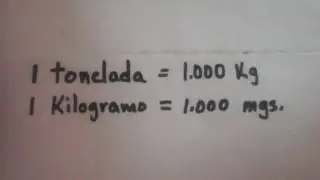 1 tonelada = 1.000 Kg
1 Kilogramo = 1.000 mgs.